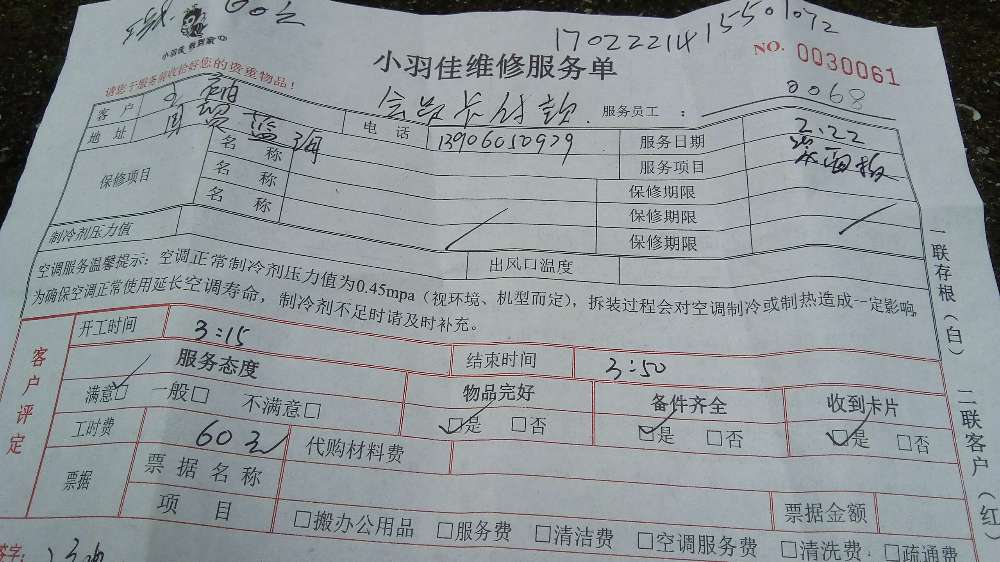 60元
17022214155501072
小羽佳 微到家
小羽佳维修服务单
NO. 0030061
请您于服务前收拾好您的贵重物品!
会员卡付款
服务员工 : 0068
客户
地址 蓝湖
电话 13906050929
服务日期 2.22
保修项目
名称
服务项目
名称
保修期限
名称
保修期限
保修期限
制冷剂压力值
出风口温度
空调服务温馨提示:空调正常制冷剂压力值为0.45mpa(视环境、机型而定),拆装过程会对空调制冷或制热造成一定影响,
为确保空调正常使用延长空调寿命,制冷剂不足时请及时补充。
一联存根(白)
二联客户(红)
客户评定
开工时间 3:15
结束时间 3:50
服务态度
物品完好
备件齐全
收到卡片
满意□ 一般□ 不满意□
□是 □否
□是 □否
□是 □否
工时费 60元
代购材料费
票据
票据名称
票据金额
项目
□搬办公用品 □服务费 □清洁费 □空调服务费 □清洗费 □疏通费
签字: